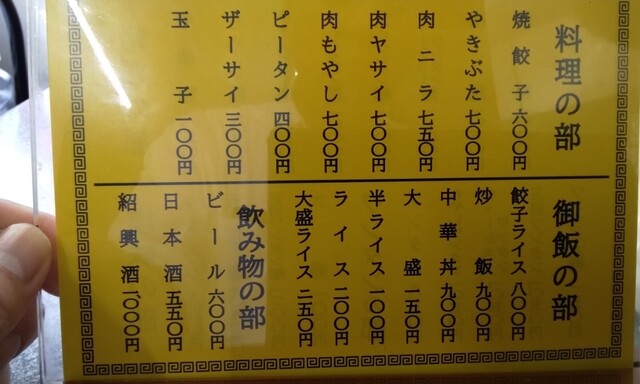 料理の部
焼餃子 六〇〇円
やきぶた 七〇〇円
肉ニラ 七五〇円
肉ヤサイ 七〇〇円
肉もやし 七〇〇円
ピータン 四〇〇円
ザーサイ 三〇〇円
玉子 一〇〇円
御飯の部
餃子ライス 八〇〇円
炒飯 九〇〇円
中華丼 九〇〇円
大盛 一五〇円
半ライス 一〇〇円
ライス 二〇〇円
大盛ライス 二五〇円
飲み物の部
ビール 六〇〇円
日本酒 五五〇円
紹興酒 一、〇〇〇円